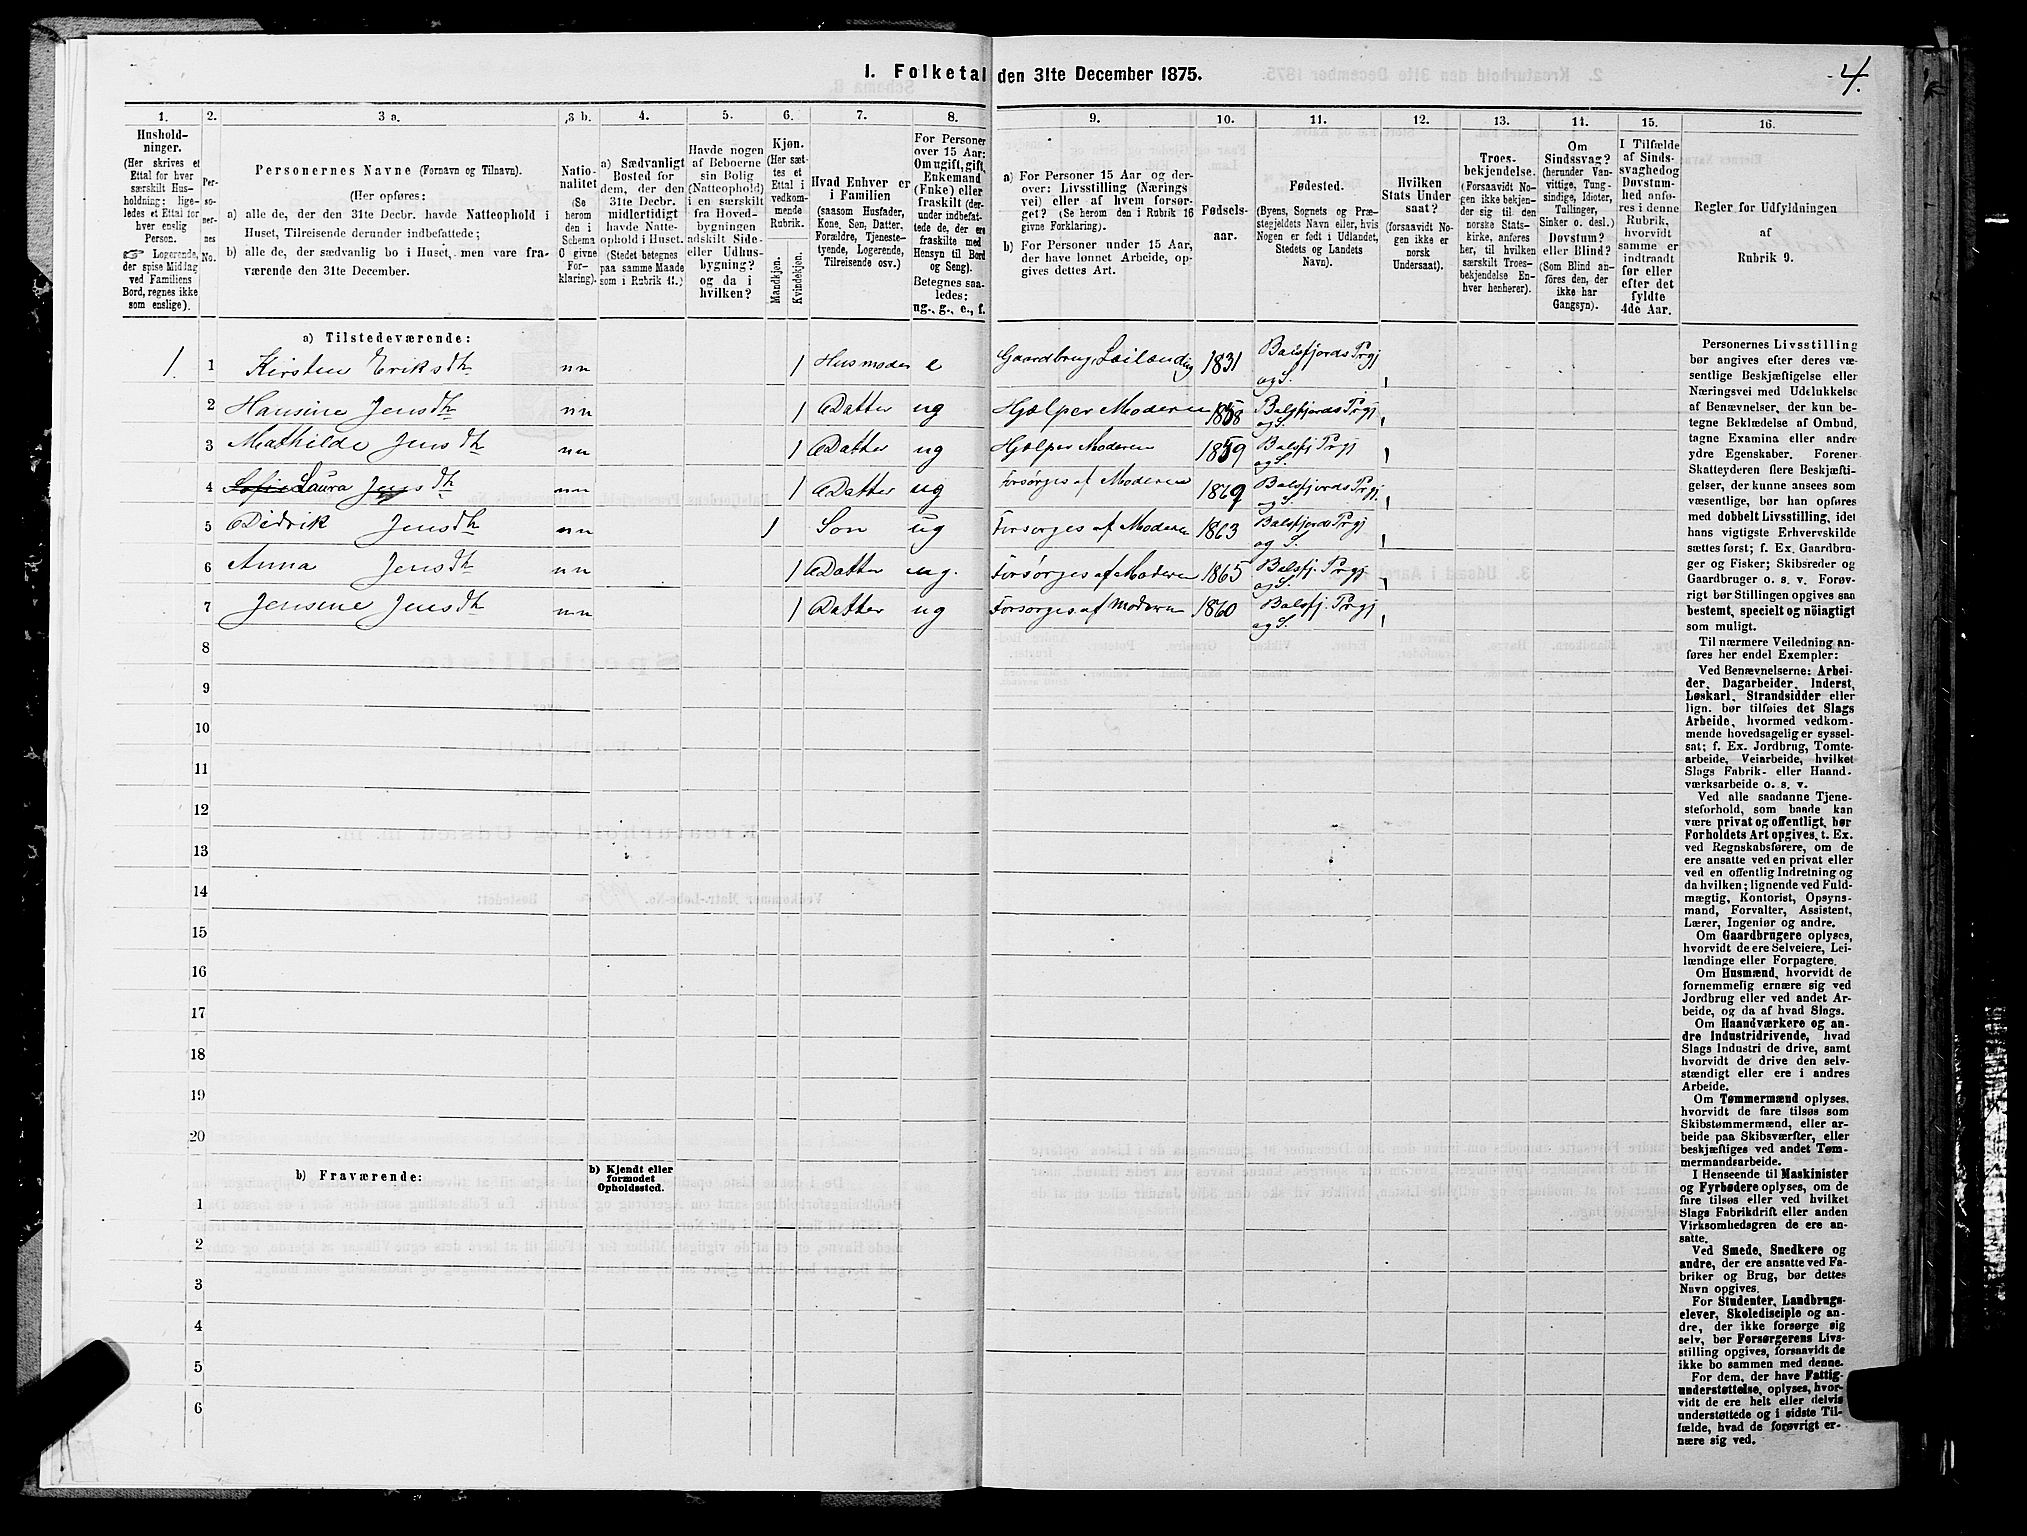 1. Folketal den 31te December 1875.
4.
1. 2. 3 a. 3 b. 4. 5. 6. 7. 8. 9. 10. 11. 12. 13. 14. 15. 16.
Hushold-
ninger.
(Her skrives et
Ettal for hver
særskilt Hus-
holdning; lige-
ledes et Ettal for
hver enslig
Person.
☞ Logerende,
der spise Middag
ved Familiens
Bord, regnes ikke
som enslige).
Per-
so-
ner-
nes
No.
Personernes Navne (Fornavn og Tilnavn).
(Her opføres:
a) alle de, der den 31te Decbr. havde Natteophold i
Huset, Tilreisende derunder indbefattede;
b) alle de, der sædvanlig bo i Huset, men vare fra-
værende den 31te December.
Natio-
nalitet
(Se
herom
den i
Schema
O givne
For-
klaring).
a) Sædvanligt
Bosted for
dem, der den
31te Decbr.
midlertidigt
havde Natte-
ophold i Huset.
(Stedet betegnes
paa samme Maade
som i Rubrik 11.)
Havde nogen
af Beboerne
sin Bolig
(Natteophold)
i en særskilt
fra Hoved-
bygningen
adskilt Side-
eller Udhus-
bygning?
og da i
hvilken?
Kjøn.
(Her sæt-
tes et
Ettal i
vedkom-
mende
Rubrik.
Mandkjøn.
Kvindekjøn.
Hvad Enhver er
i Familien
(saasom Husfader,
Kone, Søn, Datter,
Forældre, Tjeneste-
tyende, Logerende,
Tilreisende osv.)
For Personer
over 15 Aar:
Om ugift, gift,
Enkemand
(Enke) eller
fraskilt (der-
under indbefat-
tede de, der ere
fraskilte med
Hensyn til Bord
og Seng).
Betegnes saa-
ledes:
ug., g., e., f.
a) For Personer 15 Aar og der-
over: Livsstilling (Nærings
vei) eller af hvem forsør-
get? (Se herom den i Rubrik 16
givne Forklaring).
b) For Personer under 15 Aar,
der have lønnet Arbeide, op-
gives dettes Art.
Fødsels-
aar.
Fødested.
(Byens, Sognets og Præ-
stegjeldets Navn eller, hvis
Nogen er født i Udlandet,
Stedets og Landets
Navn).
Hvilken
Stats Under
saat?
(forsaavidt No-
gen ikke er
norsk
Undersaat).
Troes-
bekjendelse.
(Forsaavidt No-
gen ikke bekjen-
der sig til den
norske Stats-
kirke, anføres
her, til hvilken
særskilt Troes-
bekjendelse En-
hver henhører).
Om
Sindssvag?
(herunder Van-
vittige, Tung-
sindige, Idioter,
Tullinger,
Sinker o. desl.)
Døvstum?
eller Blind?
(Som Blind an-
føres den, der
ikke har
Gangsyn).
I Tilfælde
af Sinds-
svaghed og
Døvstum-
hed anfø-
res i denne
Rubrik,
hvorvidt
samme er
indtraadt
før eller
efter det
fyldte
4de Aar.
Regler for Udfyldningen
af
Rubrik 9.
a) Tilstedeværende:
1. 1 Kirsten Eriksdtr nn 1 Husmoder e Gaardbrug Leilænding 1831 Balsfjords Prgj og S.
2 Hansine Jensdtr nn 1 Datter ug Hjælper Moderen 1858 Balsfjords Prgj og S.
3 Mathilde Jensdtr nn 1 Datter ug Hjælper Moderen 1859 Balsfj Prgj og S.
4 Sofie Laura Jensdtr nn 1 Datter ug Forsørges af Moderen 1869 Balsfjords Prgj. og S.
5 Didrik Jensdtr nn 1 Søn ug Forsørges af Moderen 1863 Balsfjords Prgj og S.
6 Anna Jensdtr nn 1 Datter ug. Forsørges af Moderen 1865 Balsfj. Prgj og S.
7 Jensine Jensdtr nn 1 Datter ug Forsørges af Moderen 1860 Balsfj. Prgj og S.
8
9
10
11
12
13
14
15
16
17
18
19
20
b) Fraværende:
b) Kjendt eller
formodet
Opholdssted.
1
2
3
4
5
6
Personernes Livsstilling
bør angives efter deres væ-
sentlige Beskjæftigelse eller
Næringsvei med Udelukkelse
af Benævnelser, der kun be-
tegne Beklædelse af Ombud,
tagne Examina eller andre
ydre Egenskaber. Forener
Skatteyderen flere Beskjæfti-
gelser, der kunne ansees som
væsentlige, bør han opføres
med dobbelt Livsstilling, idet
hans vigtigste Erhvervskilde
sættes først; f. Ex. Gaardbru-
ger og Fisker; Skibsreder og
Gaardbruger o. s. v. Forøv-
rigt bør Stillingen opgives saa
bestemt, specielt og nöiagtigt
som muligt.
Til nærmere Veiledning an-
føres her endel Exempler:
Ved Benævnelserne: Arbei-
der, Dagarbeider, Inderst,
Løskarl, Strandsidder eller
lign. bør tilføies det Slags
Arbeide, hvormed vedkom-
mende hovedsagelig er syssel-
sat; f. Ex. Jordbrug, Tomte-
arbeide, Veiarbeide, hvilket
Slags Fabrik- eller Haand-
værksarbeide o. s. v.
Ved alle saadanne Tjene-
steforhold, som baade kan
være privat og offentligt, bør
Forholdets Art opgives, t. Ex.
ved Regnskabsførere, om de
ere ansatte ved en privat eller
ved en offentlig Indretning og
da hvilken; lignende ved Fuld-
mægtig, Kontorist, Opsyns-
mand, Forvalter, Assistent,
Lærer, Ingeniør og andre.
Om Gaardbrugere oplyses,
hvorvidt de ere Selveiere, Lei-
lændinge eller Forpagtere.
Om Husmænd, hvorvidt de
fornemmelig ernære sig ved
Jordbrug eller ved andet Ar-
beide, og da af hvad Slags.
Om Haandværkere og an-
dre Industridrivende, hvad
Slags Industri de drive, samt
hvorvidt de drive den selv-
stændigt eller ere i andres
Arbeide.
Om Tømmermænd oplyses,
hvorvidt de fare tilsøs som
Skibstømmermænd, eller ar-
beide paa Skibsværfter, eller
beskjæftiges ved andet Tøm-
mermandsarbeide.
I Henseende til Maskinister
og Fyrbødere oplyses, om de
fare tilsøs eller ved hvilket
Slags Fabrikdrift eller anden
Virksomhedsgren de ere an-
satte.
Ved Smede, Snedkere og
andre, der ere ansatte ved Fa-
briker og Brug, bør dettes
Navn opgives.
For Studenter, Landbrugs-
elever, Skoledisciple og an-
dre, der ikke forsørge sig
selv, bør Forsørgerens Livs-
stilling opgives, forsaavidt de
ikke bo sammen med denne.
For dem, der have Fattig-
understøttelse, oplyses, hvor-
vidt de ere helt eller delvis
understøttede og i sidste Til-
fælde, hvad de forøvrigt er-
nære sig ved.